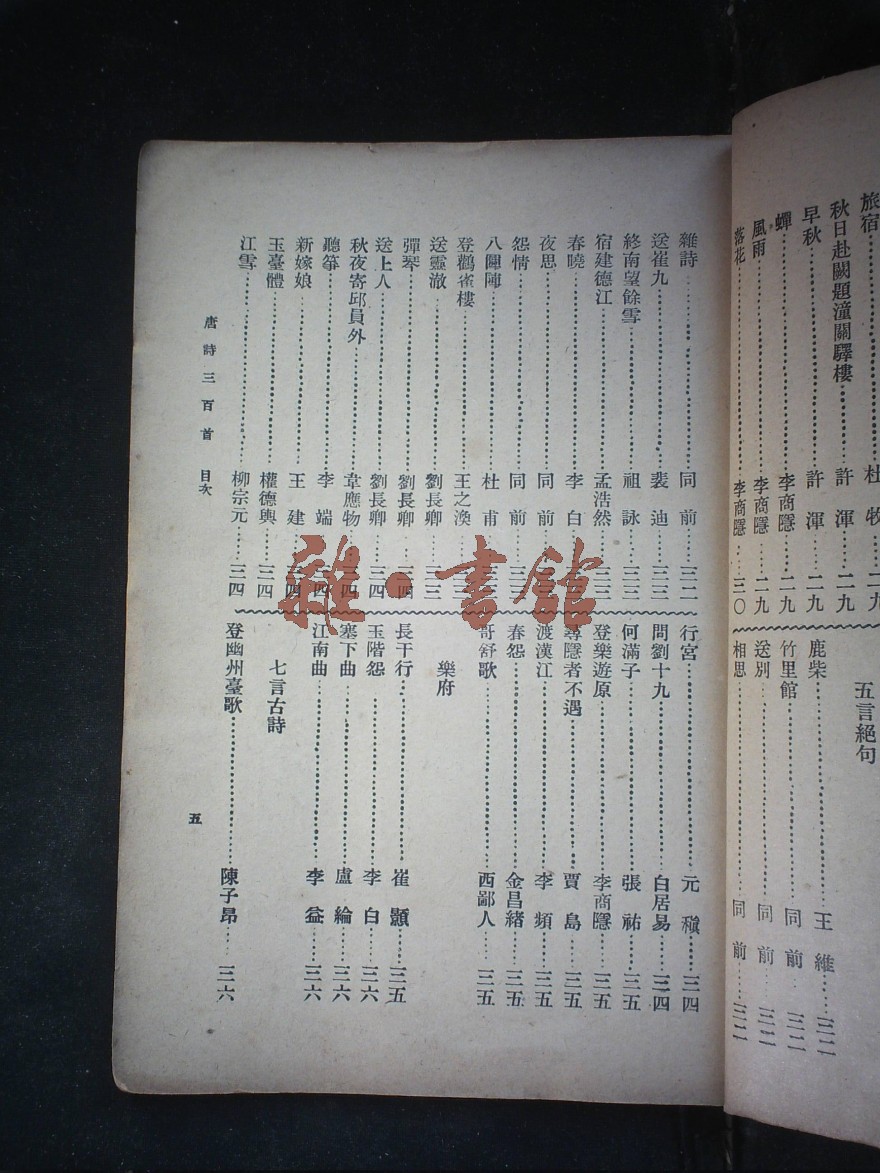 旅宿……杜牧…二九
秋日赴闕題潼關驛樓……許渾…二九
早秋……許渾…二九
蟬……李商隱…二九
風雨……李商隱…二九
落花……李商隱…三〇
五言絕句
鹿柴……王維…三二
竹里館……同前…三二
送別……同前…三二
相思……同前…三二
雜詩……同前…三二
送崔九……裴迪…三三
終南望餘雪……祖詠…三三
宿建德江……孟浩然…三三
春曉……同前
夜思……李白
怨情……同前
八圖陣……杜甫
登鸛雀樓……王之渙
送靈澈……劉長卿…三三
彈琴……劉長卿…三四
送上人……劉長卿…三四
秋夜寄邱員外……韋應物…三四
聽箏……李端…三四
新嫁娘……王建…三四
玉臺體……權德輿…三四
江雪……柳宗元…三四
行宮……元稹…三四
問劉十九……白居易…三四
何滿子……張祜…三五
登樂遊原……李商隱…三五
尋隱者不遇……賈島…三五
渡漢江……李頻…三五
春怨……金昌緒…三五
哥舒歌……西鄙人…三五
樂府
長干行……崔顥…三五
玉階怨……李白…三六
塞下曲……盧綸…三六
江南曲……李益…三六
七言古詩
登幽州臺歌……陳子昂…三六
唐詩三百首 目次
五
雜·書館